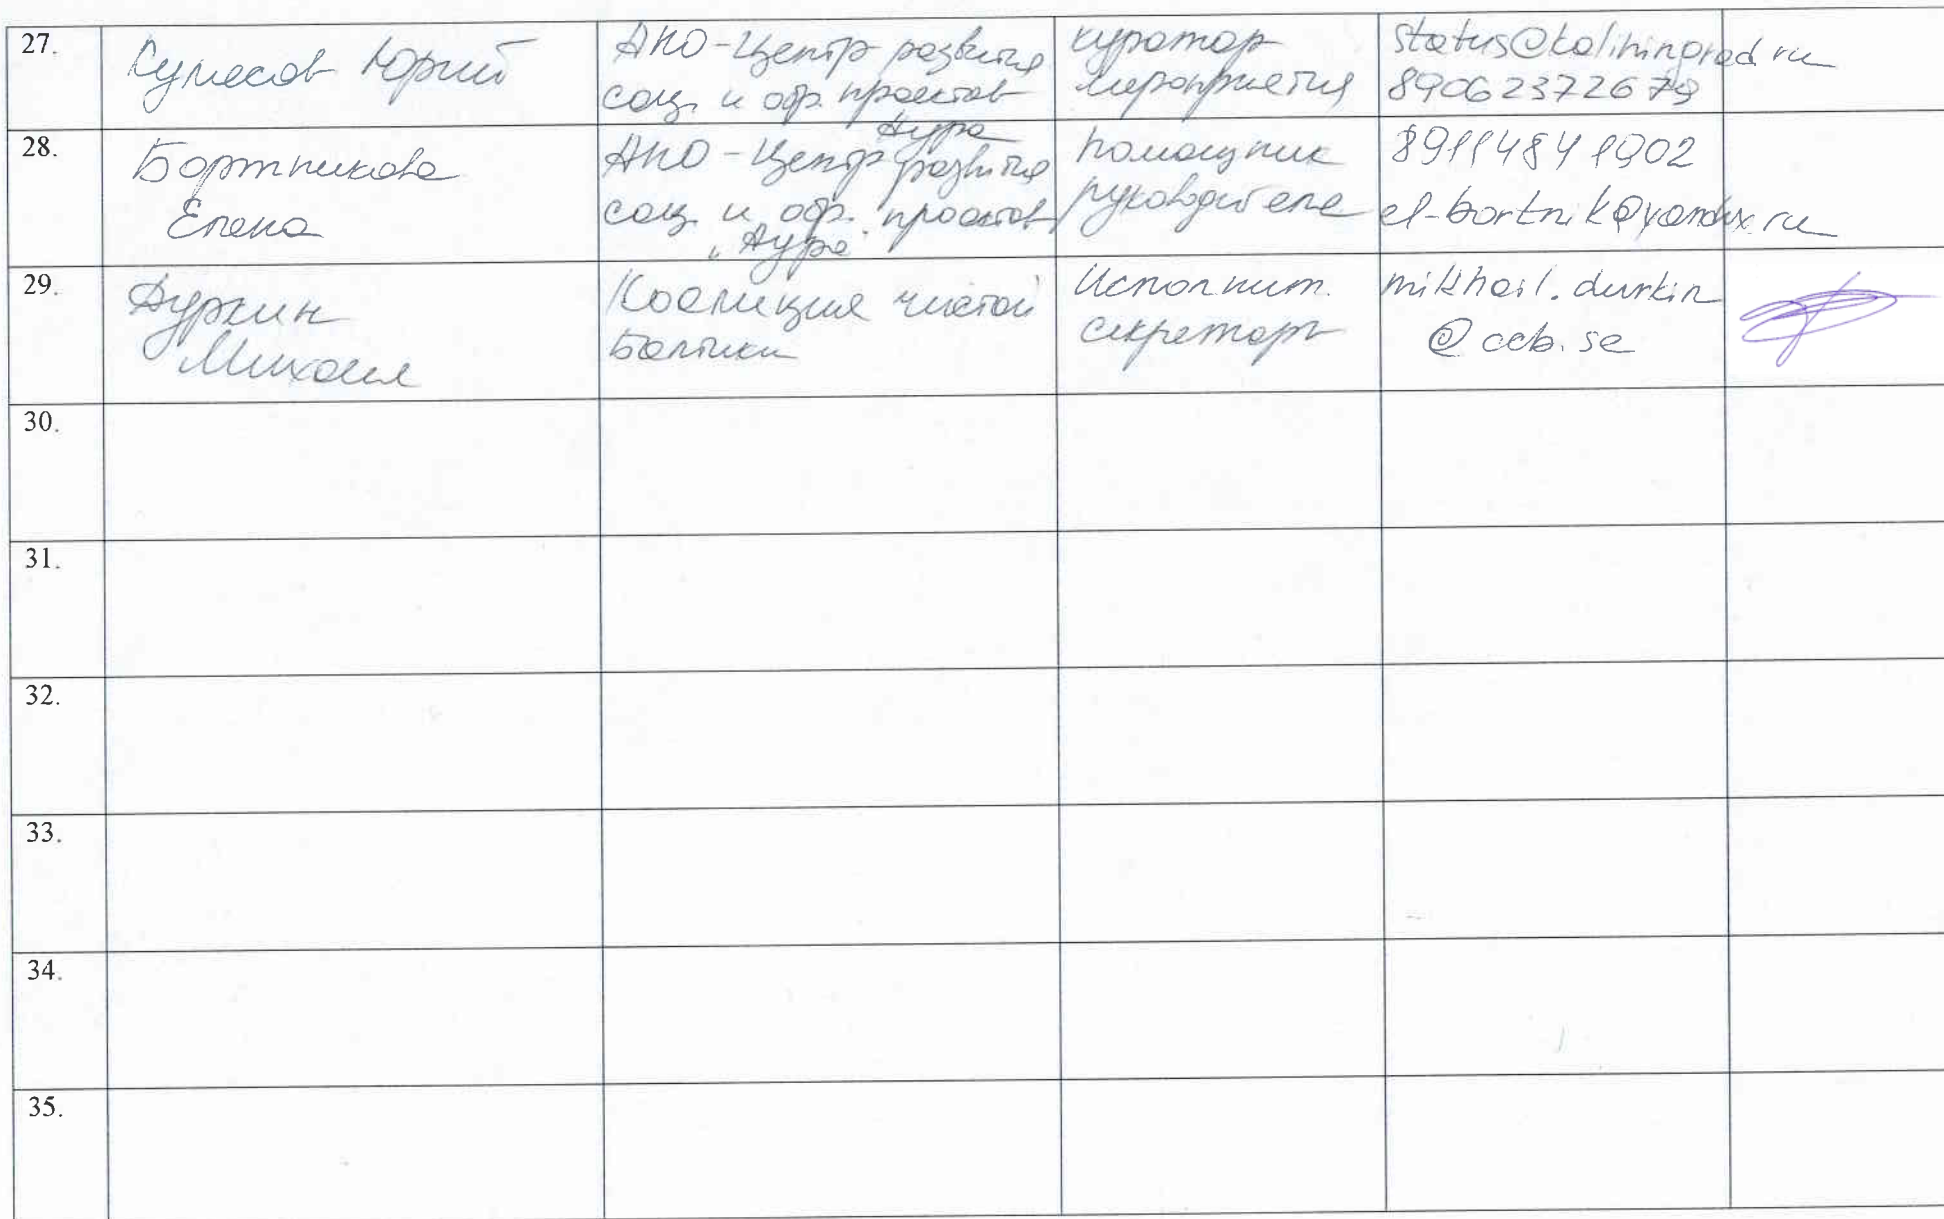 27.
Юрий
АНО-Центр развития
соц. и обр. проектов
Аура
куратор
мероприятия
status@kaliningrad.ru
28.
Бортникова
Елена
АНО-Центр развития
соц. и обр. проектов
„Аура"
помощник
руководителя
89114841902
el-bortnik@yandex.ru
29.
Дуркин
Михаил
Коалиция чистой
Балтики
Исполнит.
секретарь
mikhail.durkin
@ccb.se
30.
31.
32.
33.
34.
35.